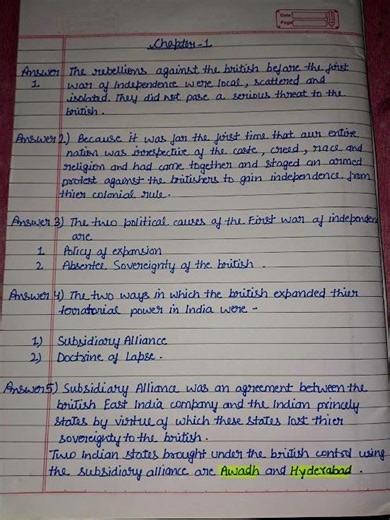 Date
Page
Chapter-1
Answer The rebellions against the british before the first
1. war of Independence were local, scattered and
isolated. They did not pose a serious threat to the
british.
Answer 2.) Because it was for the first time that our entire
nation was irrespective of the caste, creed, race and
religion and had come together and staged an armed
protest against the britishers to gain independence from
thier colonial rule.
Answer 3) The two political causes of the First war of independen
are
1 Policy of expansion
2 Absentee Sovereignty of the british.
Answer 4) The two ways in which the british expanded thier
terrotorial power in India were -
1) Subsidiary Alliance
2) Doctrine of Lapse.
Answer 5) Subsidiary Alliance was an agreement between the
british East India company and the Indian princely
states by virtue of which these states lost thier
sovereignty to the british.
Two Indian states brought under the british control using
the subsidiary alliance are Awadh and Hyderabad.